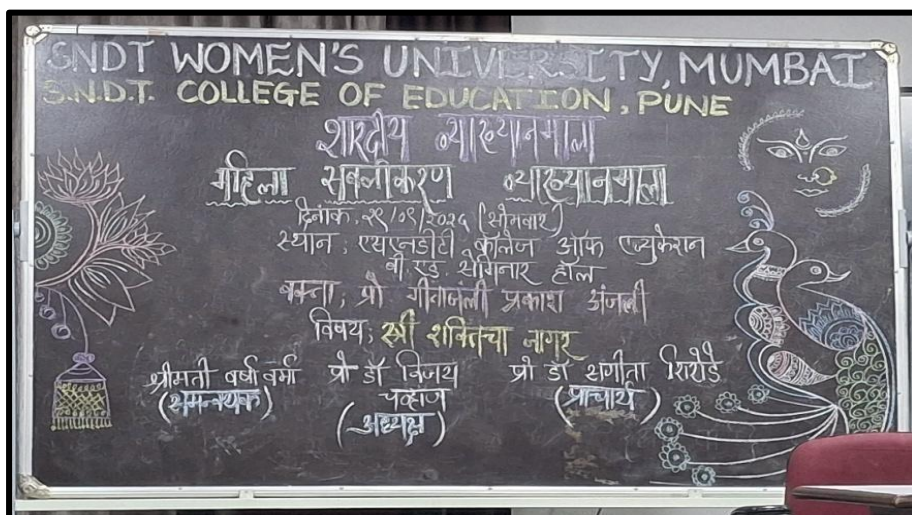 SNDT WOMEN'S UNIVERSITY, MUMBAI
S.N.D.T. COLLEGE OF EDUCATION, PUNE
शारदीय व्याख्यानमाला
महिला सबलीकरण व्याख्यानमाला
दिनांक, २९/०९/२०२५ (सोमवार)
स्थान; एसएनडीटी कॉलेज ऑफ एज्युकेशन
बी.एड. सेमिनार हॉल
वक्ता; प्रो गीतांजली प्रकाश अंजली
विषय; स्त्री शक्तिचा जागर
श्रीमती वर्षा वर्मा प्रो डॉ विजय प्रो डॉ संगीता शिरोडे
(समन्वयक) चव्हाण (प्राचार्य)
(अध्यक्ष)